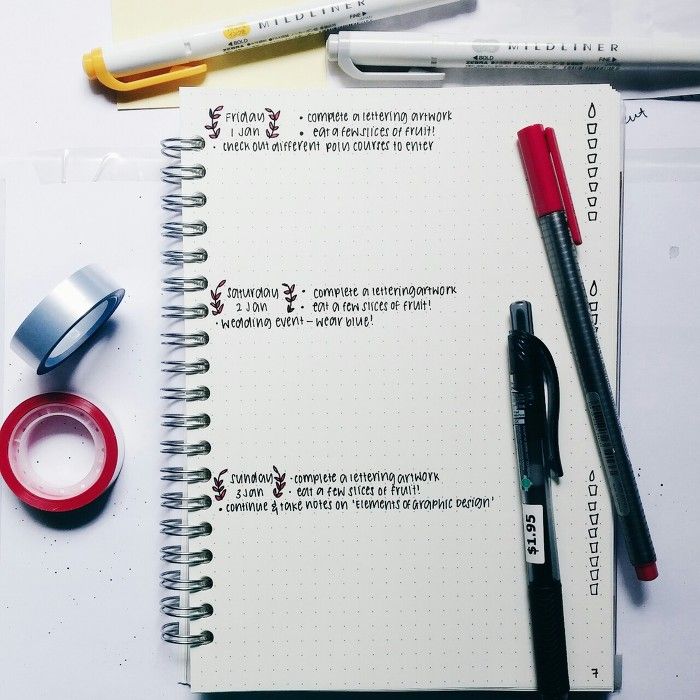 MILDLINER
◀BOLD
ZEBRA
FINE▶
MILDLINER
◀BOLD
ZEBRA
FINE▶
Friday
1 Jan
• complete a lettering artwork
• eat a few slices of fruit!
• check out different poly courses to enter
Saturday
2 Jan
• complete a lettering artwork
• eat a few slices of fruit!
• wedding event – wear blue!
Sunday
3 Jan
• complete a lettering artwork
• eat a few slices of fruit!
• continue & take notes on 'Elements of Graphic Design'
$1.95
7